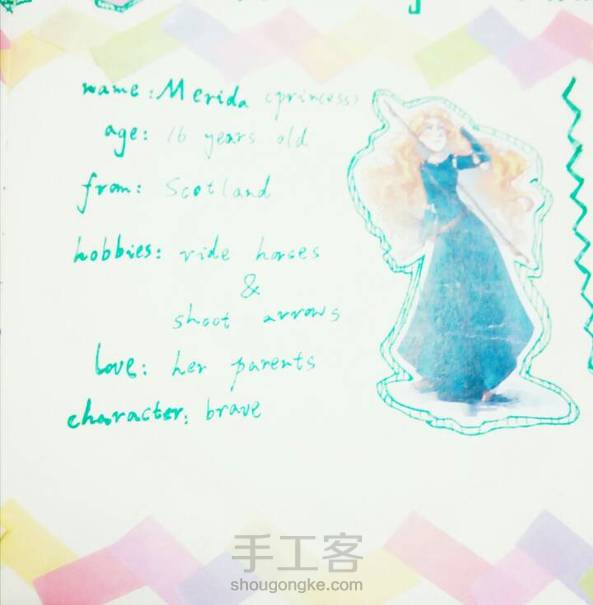 name: Merida (princess)
age: 16 years old
from: Scotland
hobbies: ride horses
&
shoot arrows
love: her parents
character: brave
手工客
shougongke.com